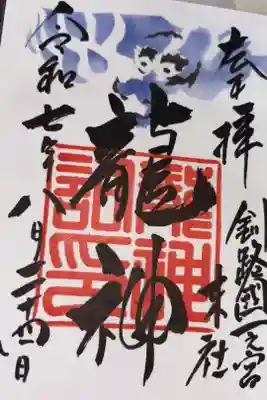 奉拝
釧路國一之宮
末社
龍神
龍神
令和七年八月二十四日